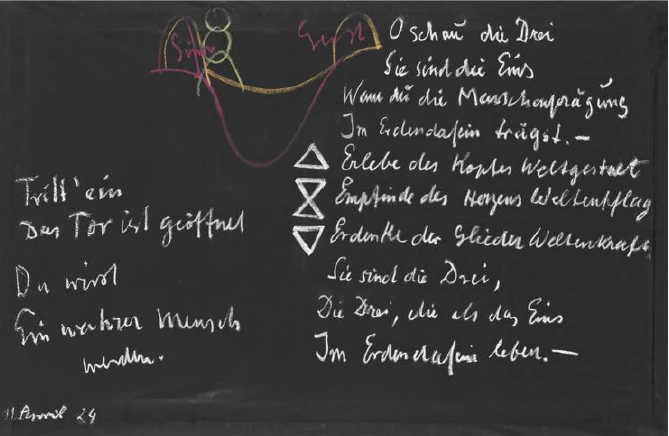 Geist
O schau die Drei
Sie sind die Eins
Wenn du die Menschenprägung
Im Erdendasein trägst.—
Erlebe des Kopfes Weltgestalt
Empfinde des Herzens Weltenschlag
Erdenke der Glieder Weltenkraft
Sie sind die Drei,
Die Drei, die als das Eins
Im Erdendasein leben.—
Tritt ein
Das Tor ist geöffnet
Du wirst
Ein wahrer Mensch
werden.
24